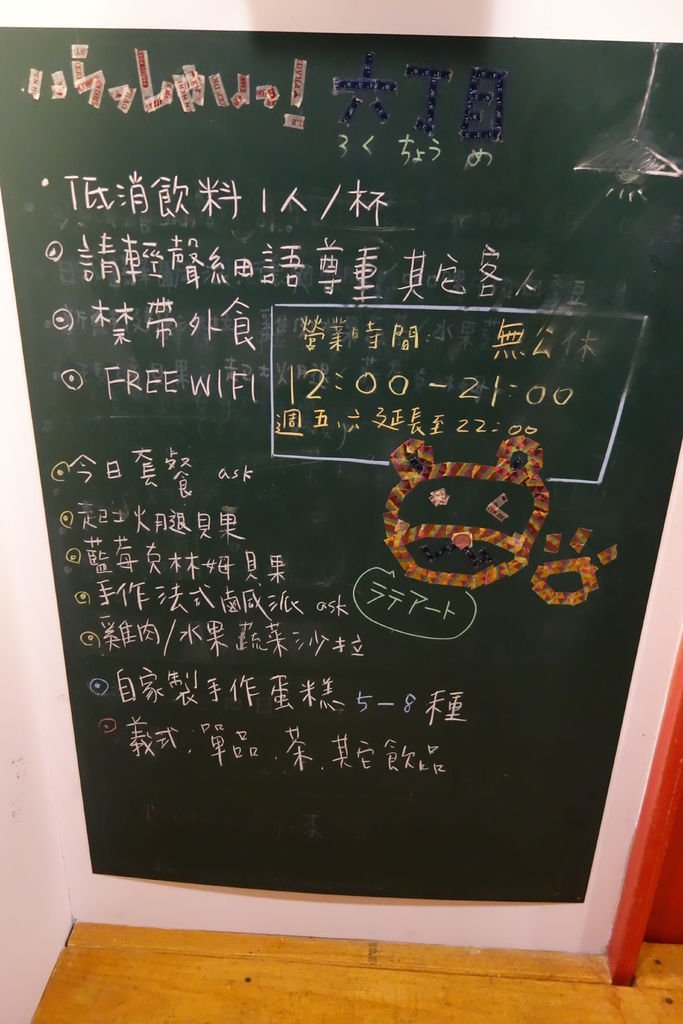 いらっしゃいっ! 六丁目
ろくちょうめ
・低消飲料1人/杯
請輕聲細語尊重其它客人
禁帶外食
FREE WIFI
營業時間: 無公休
12:00-21:00
週五、六延長至22:00
今日套餐 ask
起士火腿貝果
藍莓克林姆貝果
手作法式鹹派 ask
雞肉/水果蔬菜沙拉
ラテアート
自家製手作蛋糕 5-8種
義式、單品、茶、其它飲品